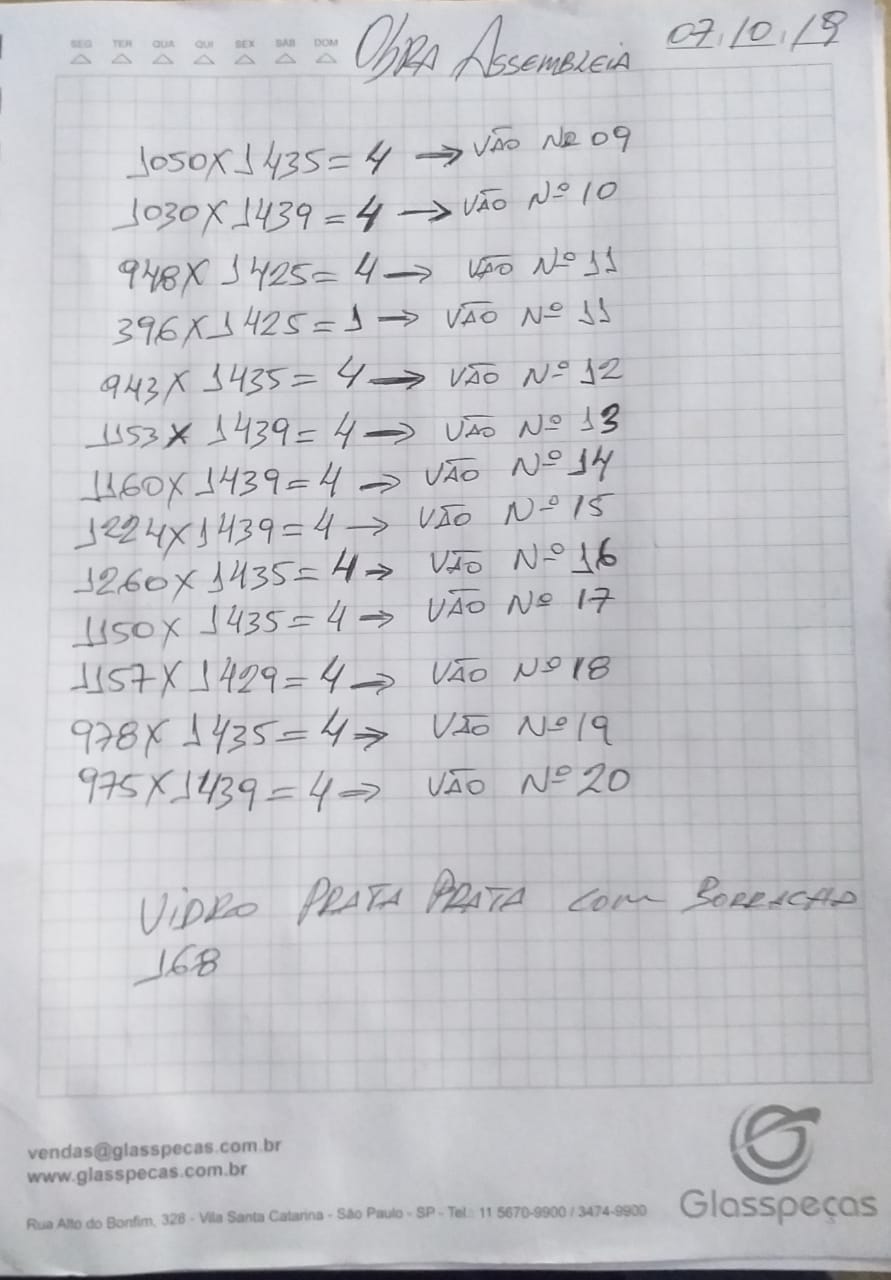 SEG TER QUA QUI SEX SAB DOM
OBRA ASSEMBLEIA 07.10.19
1050X1435=4 → VÃO Nº 09
1030X1439=4 → VÃO Nº 10
948X1425=4 → VÃO Nº 11
396X1425=1 → VÃO Nº 11
943X1435=4 → VÃO Nº 12
1153X1439=4 → VÃO Nº 13
1160X1439=4 → VÃO Nº 14
1224X1439=4 → VÃO Nº 15
1260X1435=4 → VÃO Nº 16
1150X1435=4 → VÃO Nº 17
1157X1429=4 → VÃO Nº 18
978X1435=4 → VÃO Nº 19
975X1439=4 → VÃO Nº 20
VIDRO PRATA PRATA COM
168
vendas@glasspecas.com.br
www.glasspecas.com.br
Rua Alto do Bonfim, 328 - Vila Santa Catarina - São Paulo - SP - Tel.: 11 5670-9900 / 3474-9900
Glasspeças